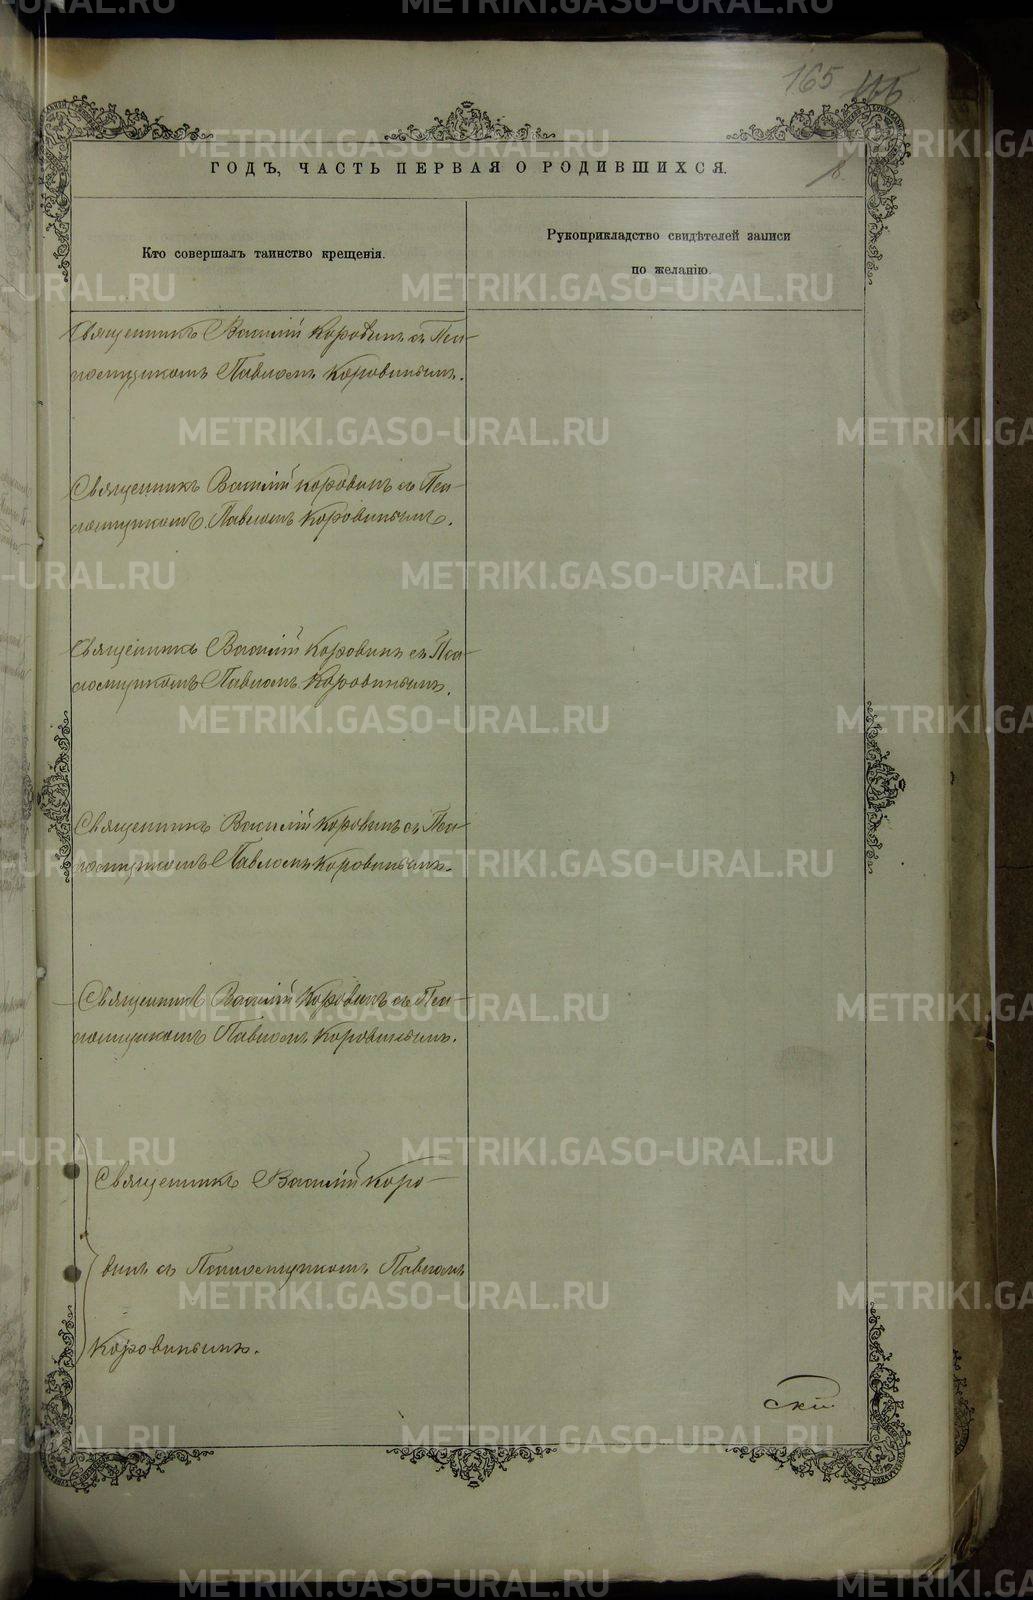 165
ГОДЪ, ЧАСТЬ ПЕРВАЯ О РОДИВШИХСЯ.
Кто совершалъ таинство крещенія.
Рукоприкладство свидѣтелей записи
по желанію.
Священникъ Василій Коровинъ съ Пса-
ломщикомъ Павломъ Коровинымъ.
Священникъ Василій Коровинъ съ Пса-
ломщикомъ Павломъ Коровинымъ.
Священникъ Василій Коровинъ съ Пса-
ломщикомъ Павломъ Коровинымъ.
Священникъ Василій Коровинъ съ Пса-
ломщикомъ Павломъ Коровинымъ.
Священникъ Василій Коровинъ съ Пса-
ломщикомъ Павломъ Коровинымъ.
Священникъ Василій Коро-
винъ съ Псаломщикомъ Павломъ
Коровинымъ.
скій
METRIKI.GASO-URAL.RU